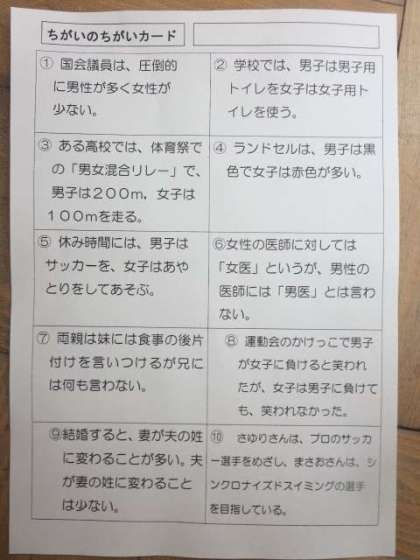 ちがいのちがいカード
① 国会議員は、圧倒的
に男性が多く女性が
少ない。
② 学校では、男子は男子用
トイレを女子は女子用ト
イレを使う。
③ ある高校では、体育祭で
の「男女混合リレー」で、
男子は200m，女子は
100mを走る。
④ ランドセルは、男子は黒
色で女子は赤色が多い。
⑤ 休み時間には、男子は
サッカーを、女子はあや
とりをしてあそぶ。
⑥女性の医師に対しては
「女医」というが、男性の
医師には「男医」とは言わ
ない。
⑦ 両親は妹には食事の後片
付けを言いつけるが兄に
は何も言わない。
⑧ 運動会のかけっこで男子
が女子に負けると笑われ
たが、女子は男子に負けて
も、笑われなかった。
⑨結婚すると、妻が夫の姓
に変わることが多い。夫
が妻の姓に変わること
は少ない。
⑩ さゆりさんは、プロのサッカ
ー選手をめざし、まさおさんは、シ
ンクロナイズドスイミングの選手
を目指している。